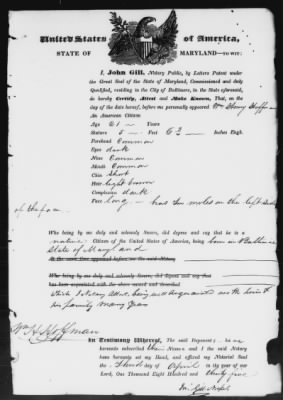 United States of America,
STATE OF MARYLAND—TO WIT:
I, John Gill, Notary Public, by Letters Patent under
the Great Seal of the State of Maryland, Commissioned and duly
Qualified, residing in the City of Baltimore, in the State aforesaid,
do hereby Certify, Attest and Make Known, That, on the
day of the date hereof, before me personally appeared Wm Henry
An American Citizen
Age 21 — Years
Stature 5 — Feet 6 Inches Engh.
Forehead Common
Eyes dark
Nose Common
Mouth Common
Chin Short
Hair light brown
Complexion dark
Face long — has two moles on the left side
of the face
Who being by me duly and solemnly Sworn, did depose and say that he is a
native Citizen of the United States of America, being born in Baltimore
State of Maryland
Who being by me duly and solemnly Sworn, did depose and say that
his family many years
Wm H Hoffman
In Testimony Whereof, The said Deponent has
hereunto subscribed his Names and I the said Notary
have hereunto set my Hand, and affixed my Notarial Seal
the third day of April in the year of our
Lord, One Thousand Eight Hundred and thirty five